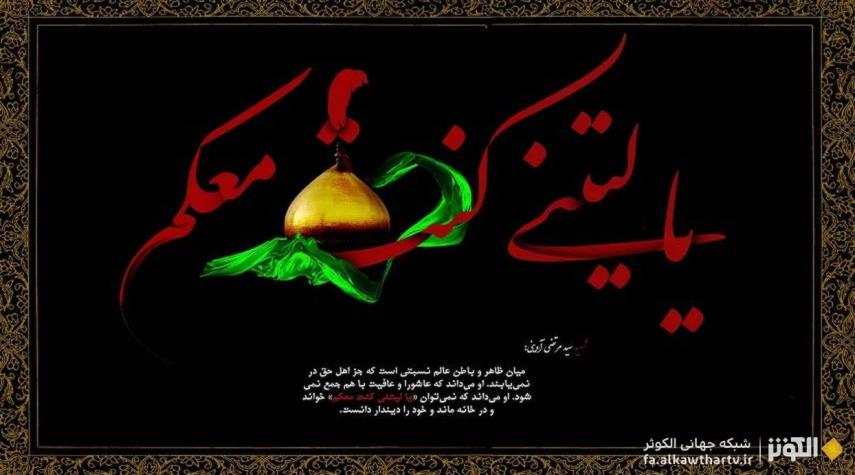 یا لیتنی کنت معکم
شهید سید مرتضی آوینی:
میان ظاهر و باطن عالم نسبتی است که جز اهل حق در
نمی‌یابند. او می‌داند که عاشورا و عافیت با هم جمع نمی
شود. او می‌داند که نمی‌توان «یا لیتنی کنت معکم» خواند
و در خانه ماند و خود را دیندار دانست.
شبکه جهانی الکوثر
fa.alkawthartv.ir
الكوثر